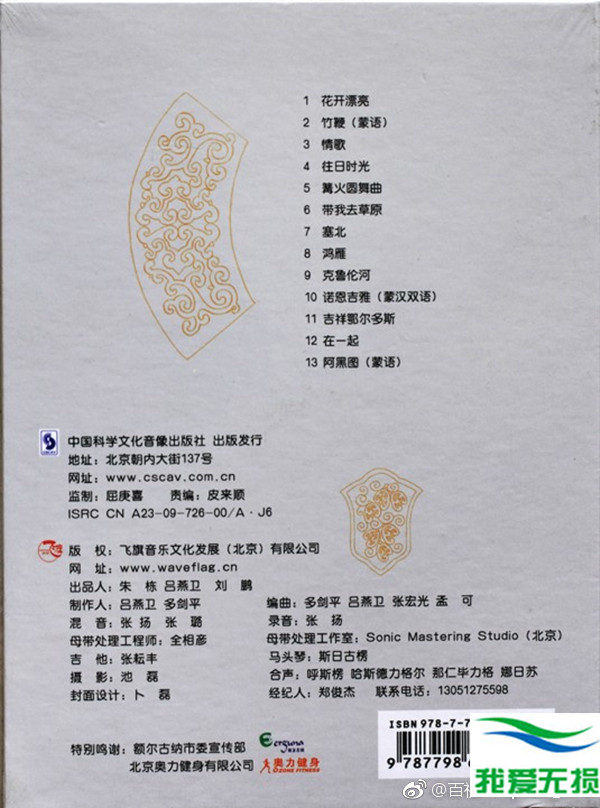 1 花开漂亮
2 竹鞭（蒙语）
3 情歌
4 往日时光
5 篝火圆舞曲
6 带我去草原
7 塞北
8 鸿雁
9 克鲁伦河
10 诺恩吉雅（蒙汉双语）
11 吉祥鄂尔多斯
12 在一起
13 阿黑图（蒙语）
中国科学文化音像出版社 出版发行
地址：北京朝内大街137号
网址：www.cscav.com.cn
监制：屈庚喜 责编：皮来顺
ISRC CN A23-09-726-00/A·J6
版 权：飞旗音乐文化发展（北京）有限公司
网 址：www.waveflag.cn
出品人：朱 栋 吕燕卫 刘 鹏
制作人：吕燕卫 多剑平 编曲：多剑平 吕燕卫 张宏光 孟 可
混 音：张 扬 张 璐 录音：张 扬
母带处理工程师：全相彦 母带处理工作室：Sonic Mastering Studio（北京）
吉 他：张耘丰 马头琴：斯日古楞
摄 影：池 磊 合声：呼斯楞 哈斯德力格尔 那仁毕力格 娜日苏
封面设计：卜 磊 经纪人：郑俊杰 联系电话：13051275598
ISBN 978-7-7
9 787798
特别鸣谢：额尔古纳市委宣传部 Ergüna
北京奥力健身有限公司 奥力健身
OZONE FITNESS
@百福
我爱无损